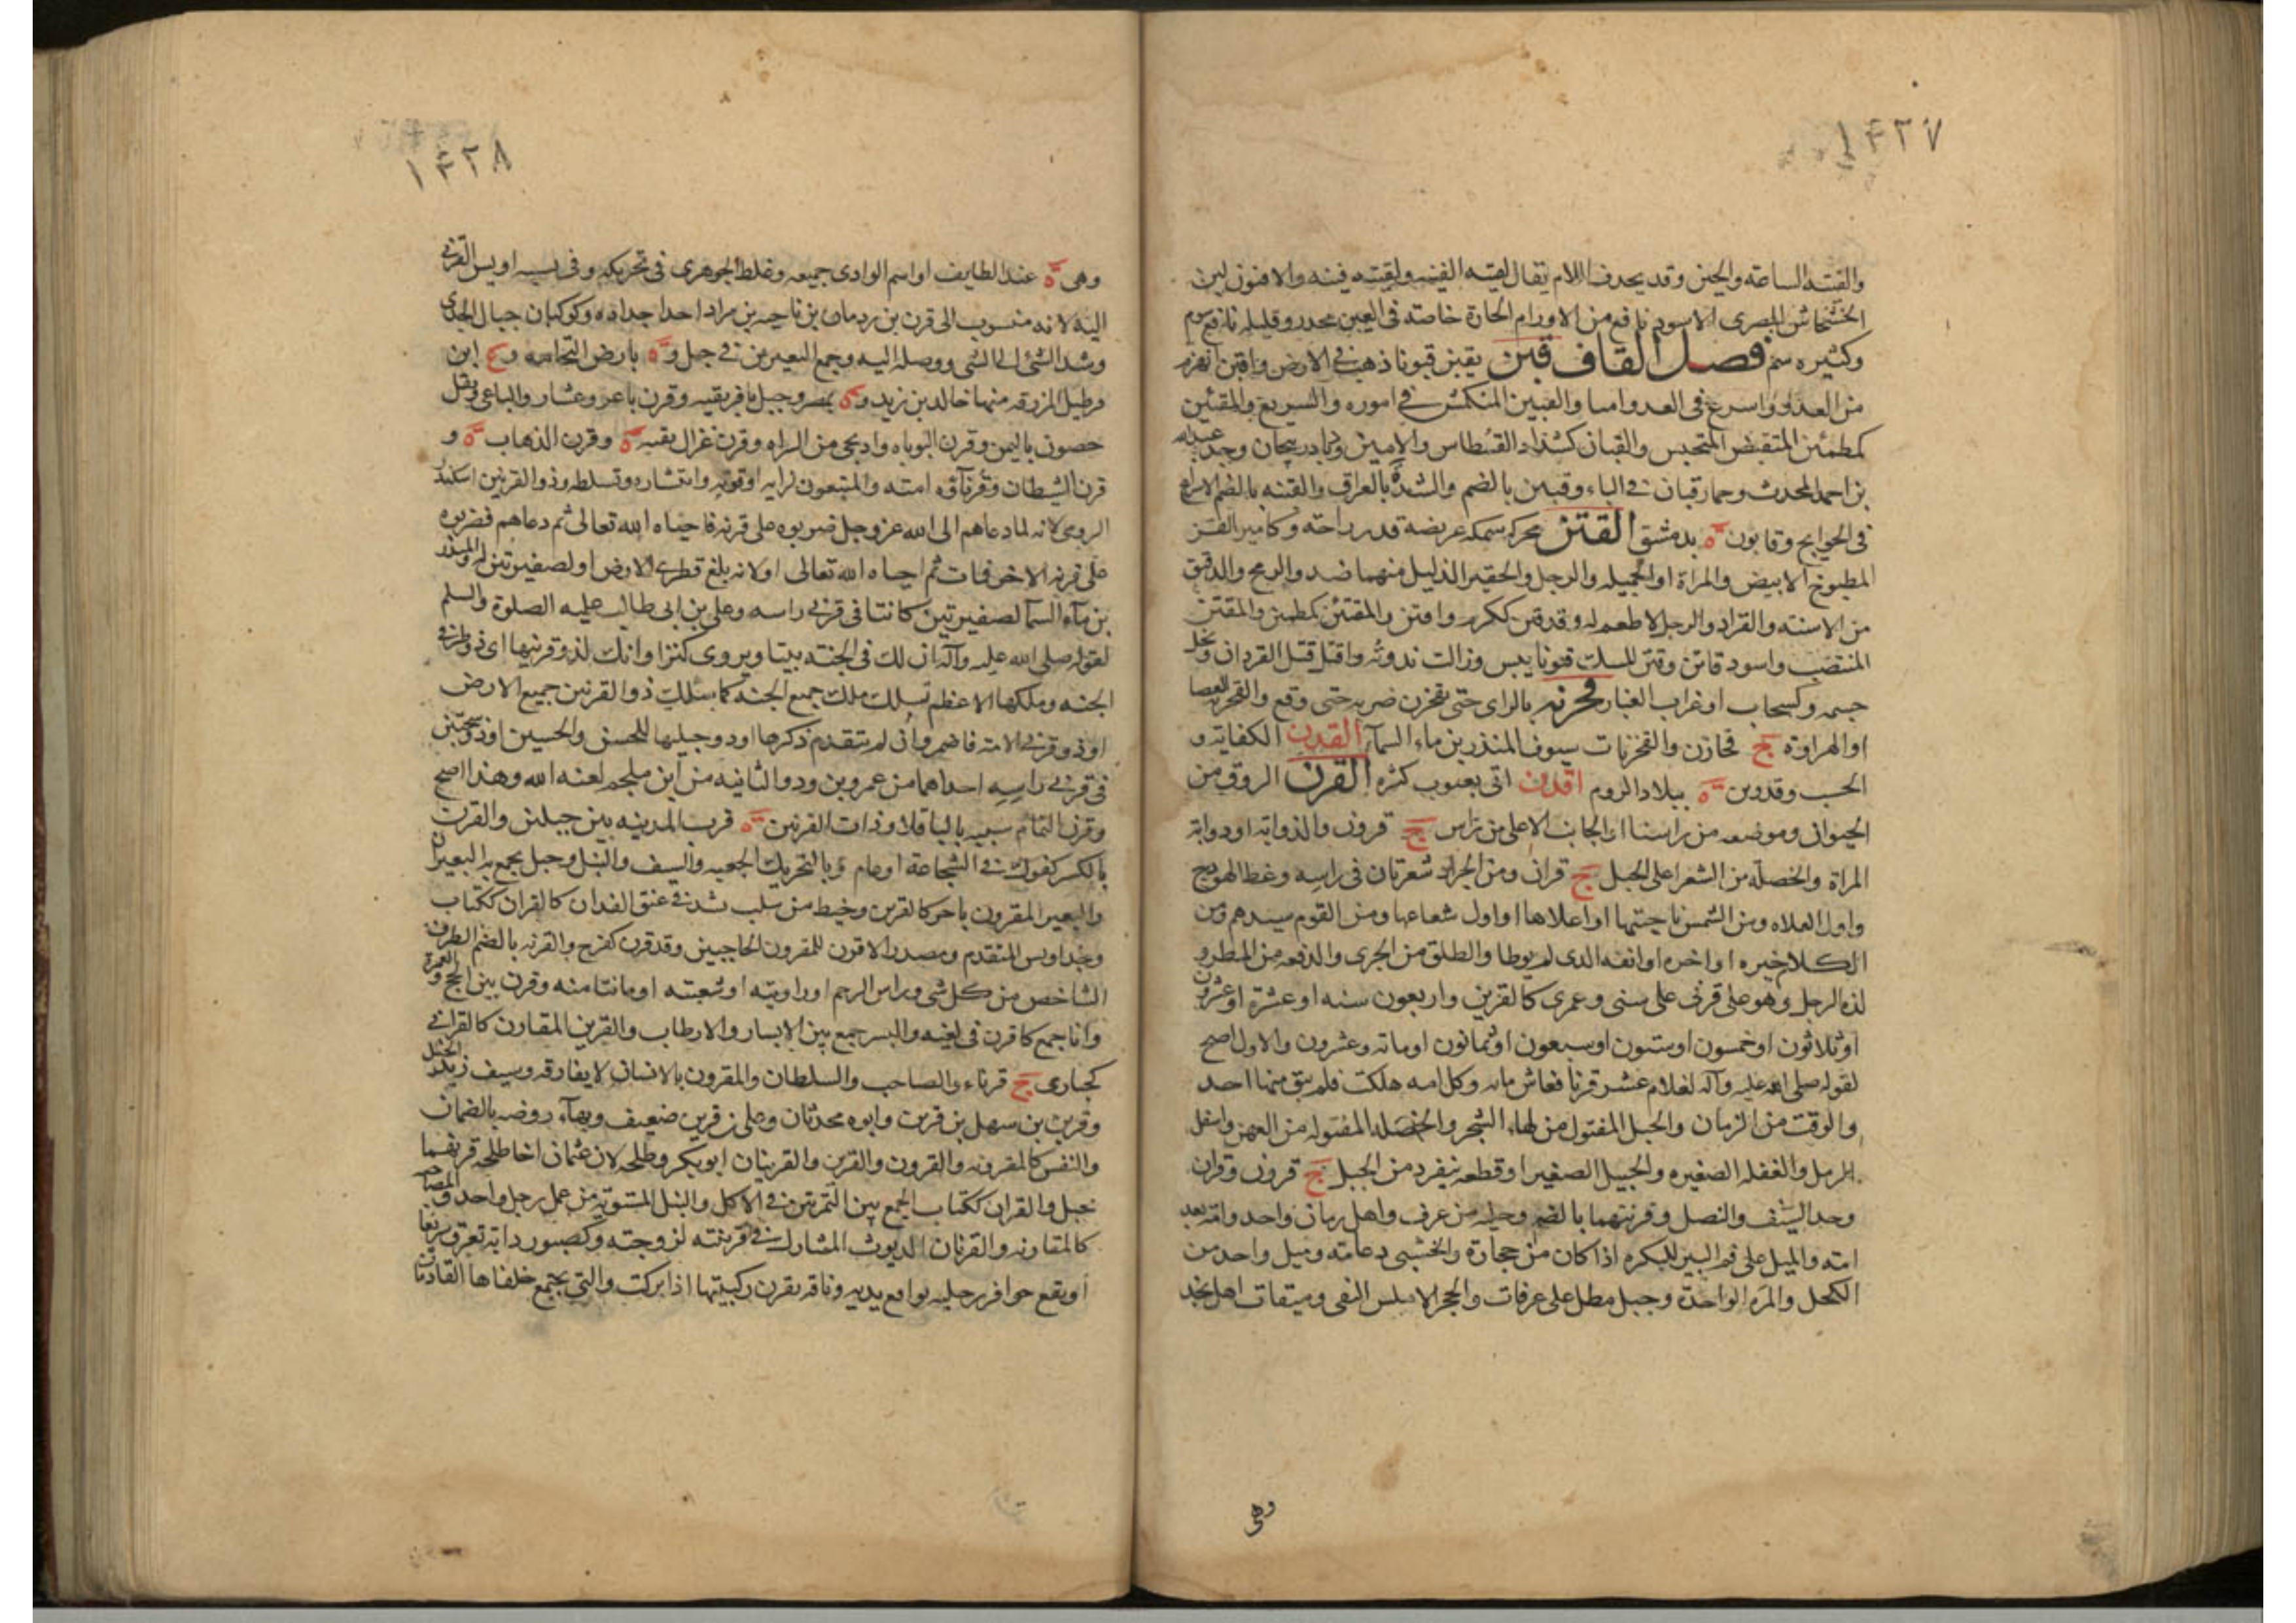 ١٤٢٧
والفينة الساعة والحين وقد يحذف اللام يقال لقيته الفينة ولقيته فينة والافيون لبن
الخشخاش المصرى الاسود نافع من الاورام الحارة خاصة فى العين مخدر وقليله نافع منوم
وكثيره سم فصل القاف قبن يقبن قبونا ذهب فى الارض واقبن انهزم
من العدو واسرع فى العدو امنا والقبين المنكمش فى اموره والسريع والمقبئن
كمطمئن المنقبض المتجنس والقبان كشداد القسطاس والامين و باذربيجان وجد عبدالله
بن احمد المحدث وحمار قبان فى الباء وقبين بالضم والشد ة بالعراق والقبنه بالضم الاسراع
فى الحوايج وقابون ة بدمشق القتن محركه سمكه عريضة قدر راحته وكامير القتن
المطبوخ الابيض والمراة او الجميله والرجل والحقير الذليل منهما ضد والرمح والدقيق
من الاسنة والقراد والرجل لا طعم له وقد قتن ككرم واقتن والمقتئن كمطمئن والمقتن
المنتصب واسود قاتن وقتن المسك قتونا يبس وزالت ندوته واقتن قتل القردان ونحل
جسمه وكسحاب او غراب الغبار قحزنه بالزاى حتى تقحزن ضربه حتى وقع والقحزنه العصا
او الهراوة ج قحازن والقحزنات سيوف المنذر بن ماء السمآء القدن الكفاية و
الحسب وقدوين ة ببلاد الروم اقدن اتى بعيوب كثيره القرن الروق من
الحيوان وموضعه من راسنا او الجانب الاعلى من الراس ج قرون والذوابة او ذوابة
المراة والخصلة من الشعر واعلى الجبل ج قران ومن الجراد شعرتان فى راسه وغطا الهودج
واول الفلاه ومن الشمس ناحيتها او اعلاها او اول شعاعها ومن القوم سيدهم ومن
الكلام خيره او اخره او انفه الذى لم يوطا والطلق من الجرى والدفعه من المطر و
لدة الرجل وهو على قرنى على سنى وعمرى كالقرين واربعون سنه او عشرة او عشرون
او ثلاثون او خمسون او ستون او سبعون او ثمانون او مائة وعشرون والاول اصح
لقوله صلى الله عليه وآله لغلام عش قرنا فعاش مايه وكل امه هلكت فلم يبق منها احد
والوقت من الزمان والحبل المفتول من لحاء الشجر والخصله المفتوله من العهن واسفل
الرمل والعفله الصغيره والجبيل الصغير او قطعه تنفرد من الجبل ج قرون وقران
وحد السيف والنصل وقرنتهما بالضم وحلبه من عرق واهل زمان واحد وامة بعد
امة والميل على فم البير للبكره اذا كان من حجارة والخشبى دعامة وميل واحد من
الكحل والمره الواحدة وجبل مطل على عرفات والحجر الاملس النقى وميقات اهل نجد
وهى
١٤٢٨
وهى ة عند الطايف او اسم الوادى جميعه وغلط الجوهرى فى تحريكه وفى نسبه اويس القرنى
اليه لانه منسوب الى قرن بن ردمان بن ناجيه بن مراد احد اجداده وكوكبان حيال الجدى
وشد الشئ الى الشئ ووصله اليه وجمع البعيرين فى حبل و ة بارض النحامه و ع ابن
وطبل المزرقه منها خالد بن زيد و ة بمصر وجبل بافريقيه وقرن باعر وعشار والباعى وبقل
حصون باليمن وقرن البوباه واد يجى من السراه وقرن غزال ثنيه ة وقرن الذهاب ة و
قرن الشيطان وقرناؤه امته والمتبعون لرايه او قوته وانتشاره وتسلطه وذو القرنين اسكندر
الرومى لانه لما دعاهم الى الله عز وجل ضربوه على قرنه فاحياه الله تعالى ثم دعاهم فضربوه
على قرنه الاخر فمات ثم احياه الله تعالى او لانه بلغ قطرى الارض او لضفيرتين له والمنذر
بن مآء السمآ لضفيرتين كانتا فى قرنى راسه وعلى بن ابى طالب عليه الصلوة والسلم
لقوله صلى الله عليه وآله ان لك فى الجنة بيتا ويروى كنزا وانك لذو قرنيها اى ذو طرفى
الجنه وملكها الاعظم تسلك ملك جميع الجنة كما سلك ذو القرنين جميع الارض
او ذو قرنى الامه فاضمر وان لم يتقدم ذكرها او ذو جبليها للحسن والحسين او ذو شجتين
فى قرنى راسه احداهما من عمرو بن ود والثانيه من ابن ملجم لعنه الله وهذا اصح
وقرن الثمام شبيه بالباقلا وذات القرنين ة قرب المدينه بين جبلين والقرن
بالكسر كفوك فى الشجاعة او عام وبالتحريك الجعبه والسيف والنبل وحبل يجمع به البعيران
والبعير المقرون باخر كالقرين وخيط من سلب شد فى عنق الفدان كالقران ككتاب
وجد اويس المتقدم ومصدر الاقرن للمقرون الحاجبين وقد قرن كفرح والقرنه بالضم الطرف
الشاخص من كل شئ وراس الرحم او زاويته او شعبته او ما نتا منه وقرن بين الحج والعمرة
وانا جمع كاقرن فى لغيه والبسر جمع بين الابسار والارطاب والقرين المقارن كالقرانى
كحبارى ج قرناء والصاحب والسلطان والمقرون بالانسان لا يفارقه وسيف زيد الخيل
وقرين بن سهل بن قرين وابوه محدثان وعلى بن قرين ضعيف وبهآء روضه بالضمان
والنفس كالمقرونه والقرون والقرين والقرينان ابو بكر وطلحه لان عثمان اخا طلحه قرنهما
بحبل والقران ككتاب الجمع بين التمرتين فى الاكل والنبل المستويه من عمل رجل واحد والمصاحبه
كالمقارنه والقرنان الديوث المشارك فى قرينته لزوجته وكصبور دابة تعرق سريعا
او يقع حوافر رجليه مواقع يديه وناقه تقرن ركبتيها اذا بركت والتى يجتمع خلفاها القادمان